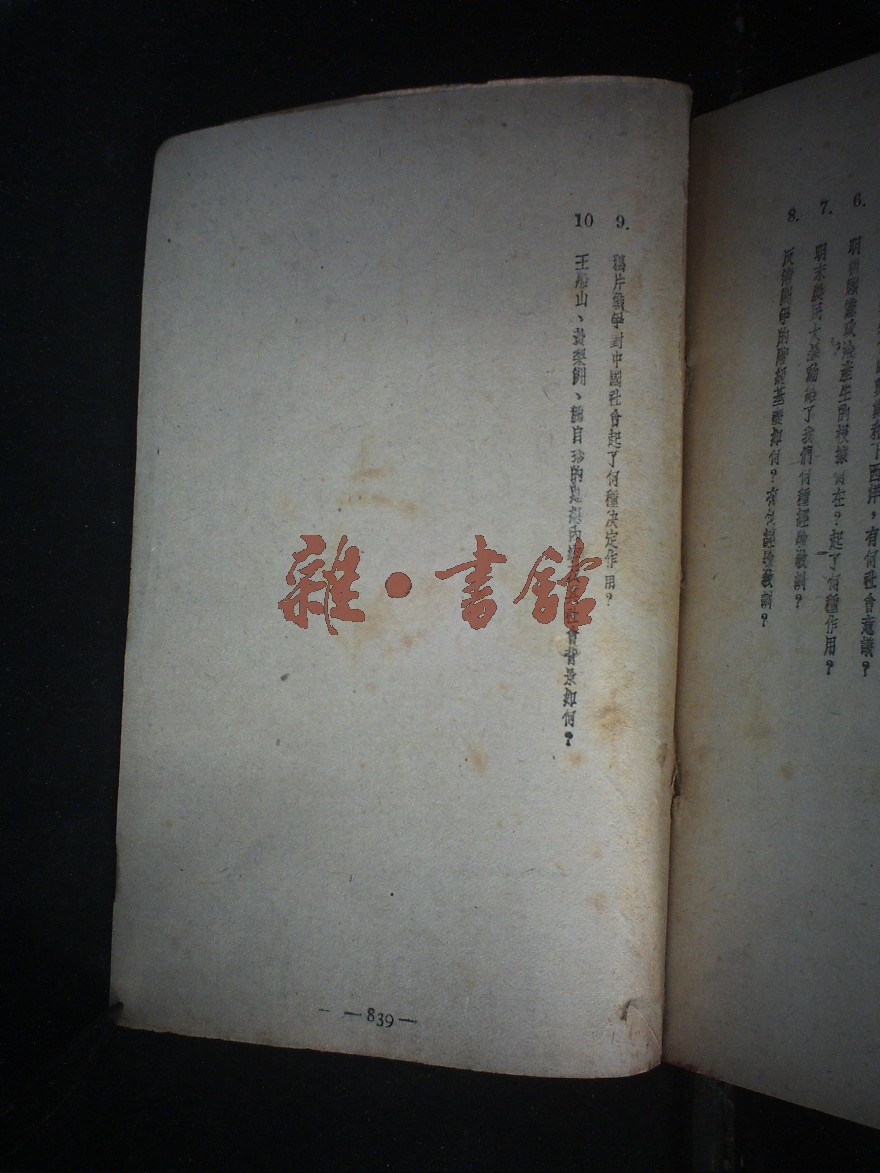 和下西洋，有何社會意議？
6. 明 產生的根據何在？起了何種作用？
7. 明末農民大暴動給了我們何種經驗教訓？
8. 反 鬥爭的階級基礎如何？有何經驗教訓？
9. 鴉片戰爭對中國社會起了何種決定作用？
10 王船山、黃梨洲、龔自珍的思想內 社會背景如何？
雜·書館
— 839 —